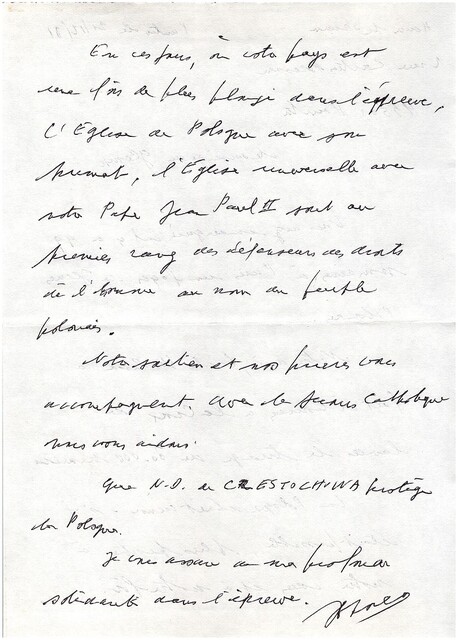 En ces jours, où votre pays est
une fois de plus plongé dans l'épreuve,
l'Eglise de Pologne avec son
primat, l'Église universelle avec
notre Pape Jean Paul II sont au
premier rang des défenseurs des droits
de l'homme au nom du peuple
polonais.
Notre soutien et nos prières vous
accompagnent. Avec le Secours Catholique
nous vous aidons.
Que N.D. de CZESTOCHOWA protège
la Pologne.
Je vous assure de ma profonde
solidarité dans l'épreuve.